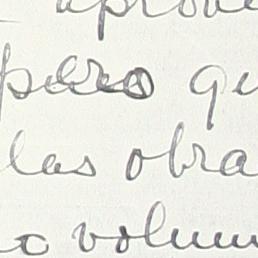 aprove
pero qu
las obra
o volum